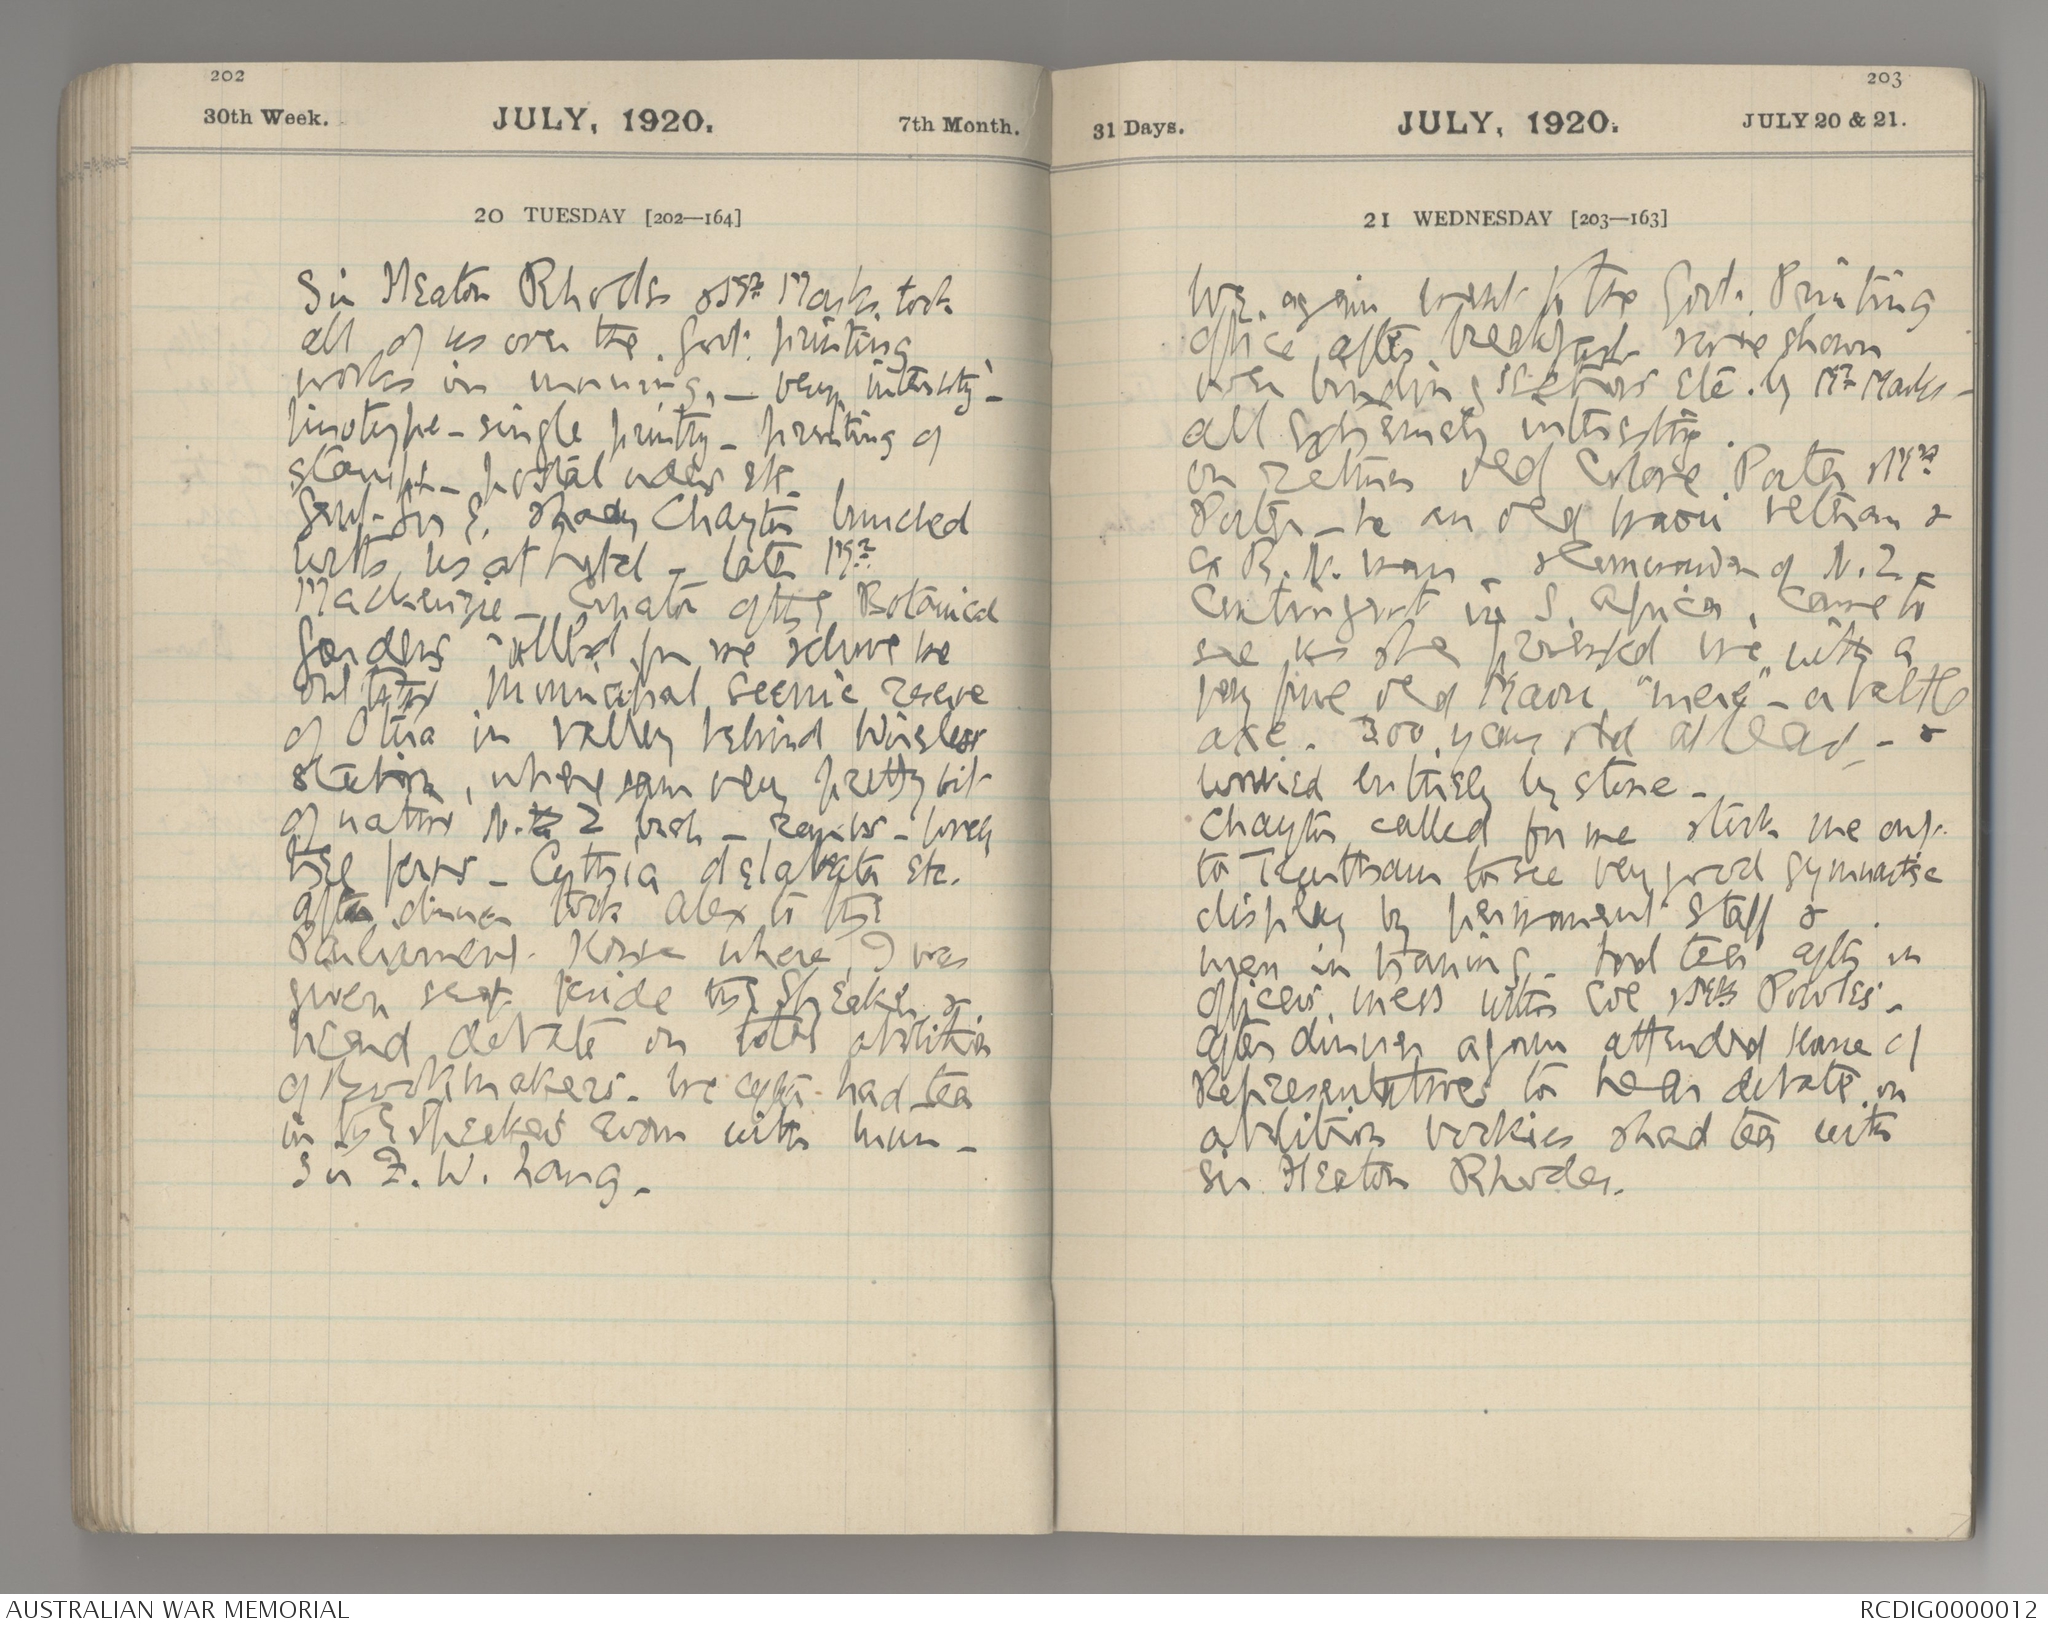 202
30th Week.
JULY, 1920.
7th Month.
20 TUESDAY [202—164]
Sir Heaton Rhodes & Mr Marks took
all of us over the Govt. printing
works in morning, — very interestg -
linotype - single printg - printing of
stamps - postal orders etc.
Genl. Sir E. & Lady Chaytor lunched
with us at hotel - later Mr
Mackenzie - Curator of the Botanical
Gardens called for me & drove me
out to the Municipal scenic reserve
of Otira in valley behind Wireless
station, where saw very pretty bit
of native N.Z. bush - - lovely
tree ferns - Cythia dealbata etc.
After dinner took Alex to the
Parliament House where I was
given seat beside the Speaker &
heard debate on total abolition
of Bookmakers. We after had tea
in the Speakers room with him -
Sir F. W. Lang.
203
31 Days.
JULY, 1920.
JULY 20 & 21.
21 WEDNESDAY [203—163]
We again went to the Govt. Printing
office after breakfast & were shown
over binding sections etc. by Mr Marks -
all extremely interesting.
On return old Colone Porter & Mrs
Porter - he an old Maori veteran &
ex R.N. man - & commander of N.Z.
Contingent in S. Africa, came to
see us & he presented me with a
very fine old Maori "mere" - a battle
axe - 300 years old at least - &
worked entirely by stone -
Chaytor called for me & took me out
to Trentham to see very good gymnastic
display by permanent staff &
men in training - had tea after in
officers mess with Col & Mrs Powles -
After dinner again attended House of
Representatives to hear debate on
abolition bookies & had tea with
Sir Heaton Rhodes.
AUSTRALIAN WAR MEMORIAL
RCDIG0000012